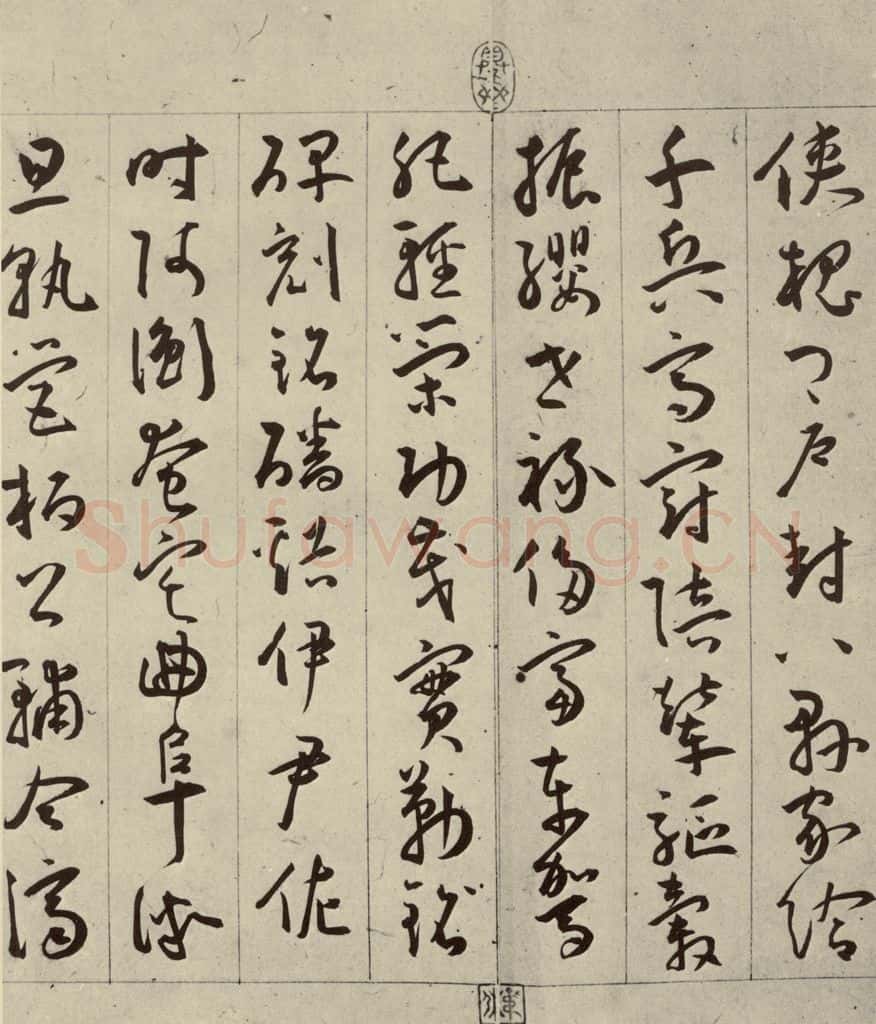 俠槐卿戶封八縣家給
千兵高冠陪輦驅轂
振纓世祿侈富車駕
肥輕策功茂實勒銘
碑刻銘磻谿伊尹佐
時阿衡奄宅曲阜微
旦孰營桓公輔合濟
Shufawang.CN